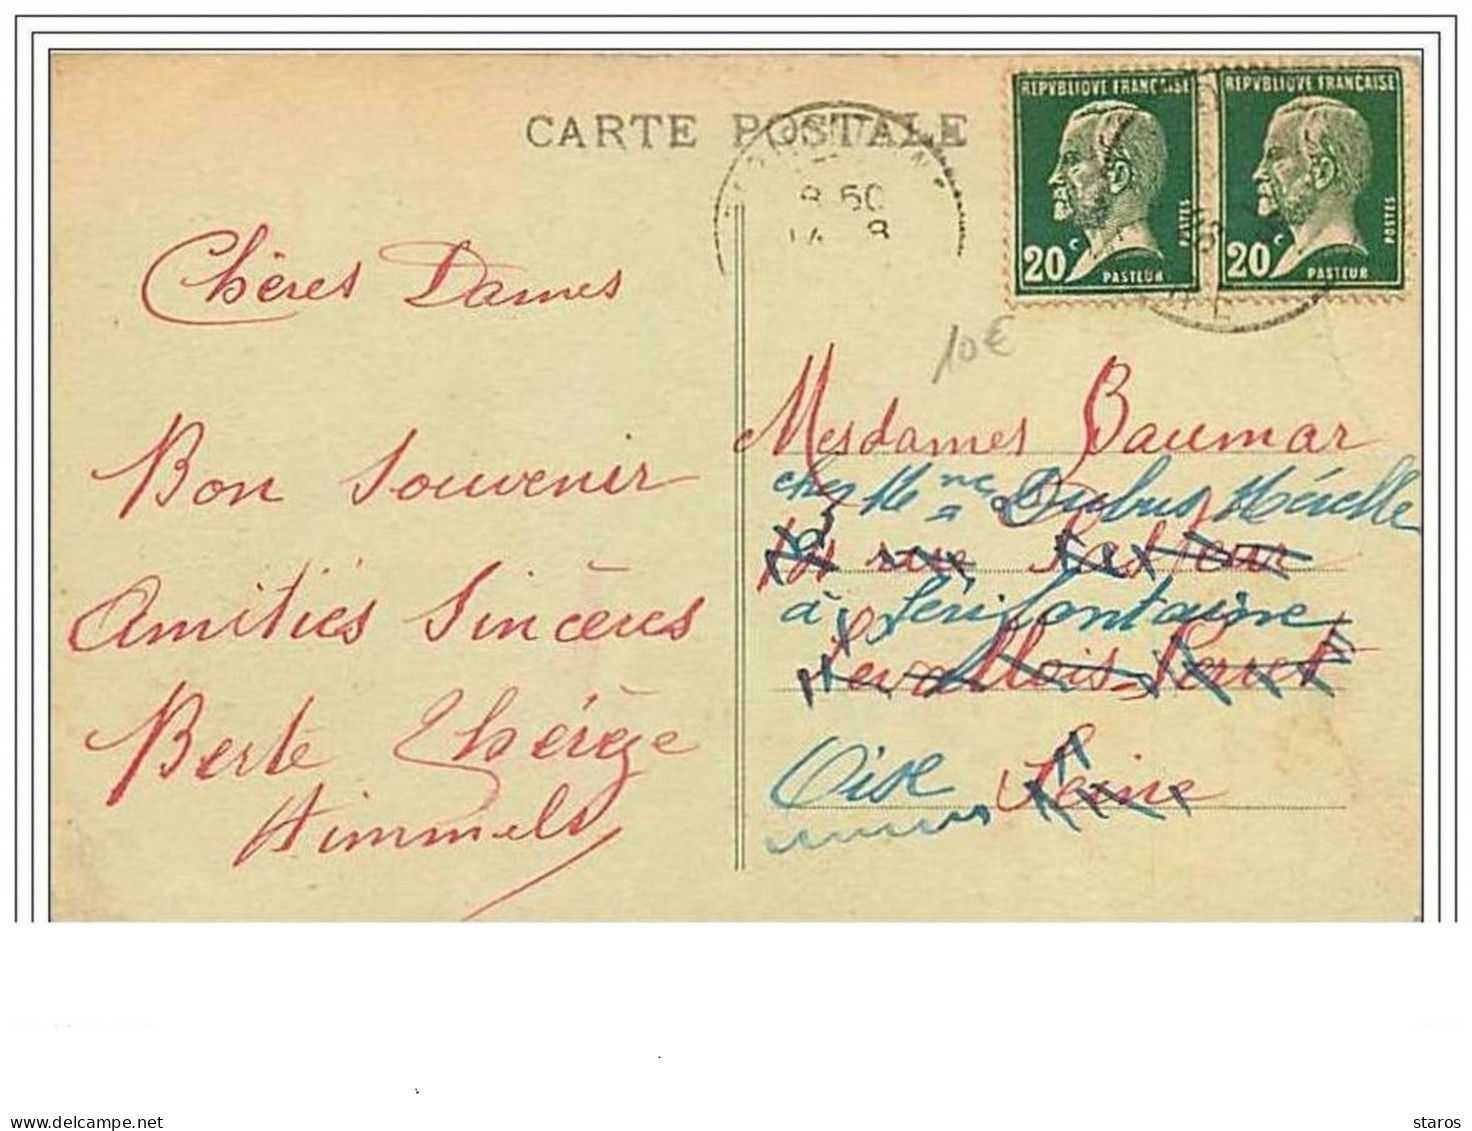 CARTE POSTALE
8 50
REPVBLIQVE FRANÇAISE
20 c
POSTES
PASTEUR
REPVBLIQVE FRANÇAISE
20 c
POSTES
PASTEUR
10€
Chères Dames
Bon Souvenir
Amitiés Sincères
Berte Thérèze
Himmels
Mesdames Baumar
chez Mme Dubus Mérelle
rue Pasteur
à Sérifontaine
Levallois-Perret
Oise Seine
delcampe.net
staros